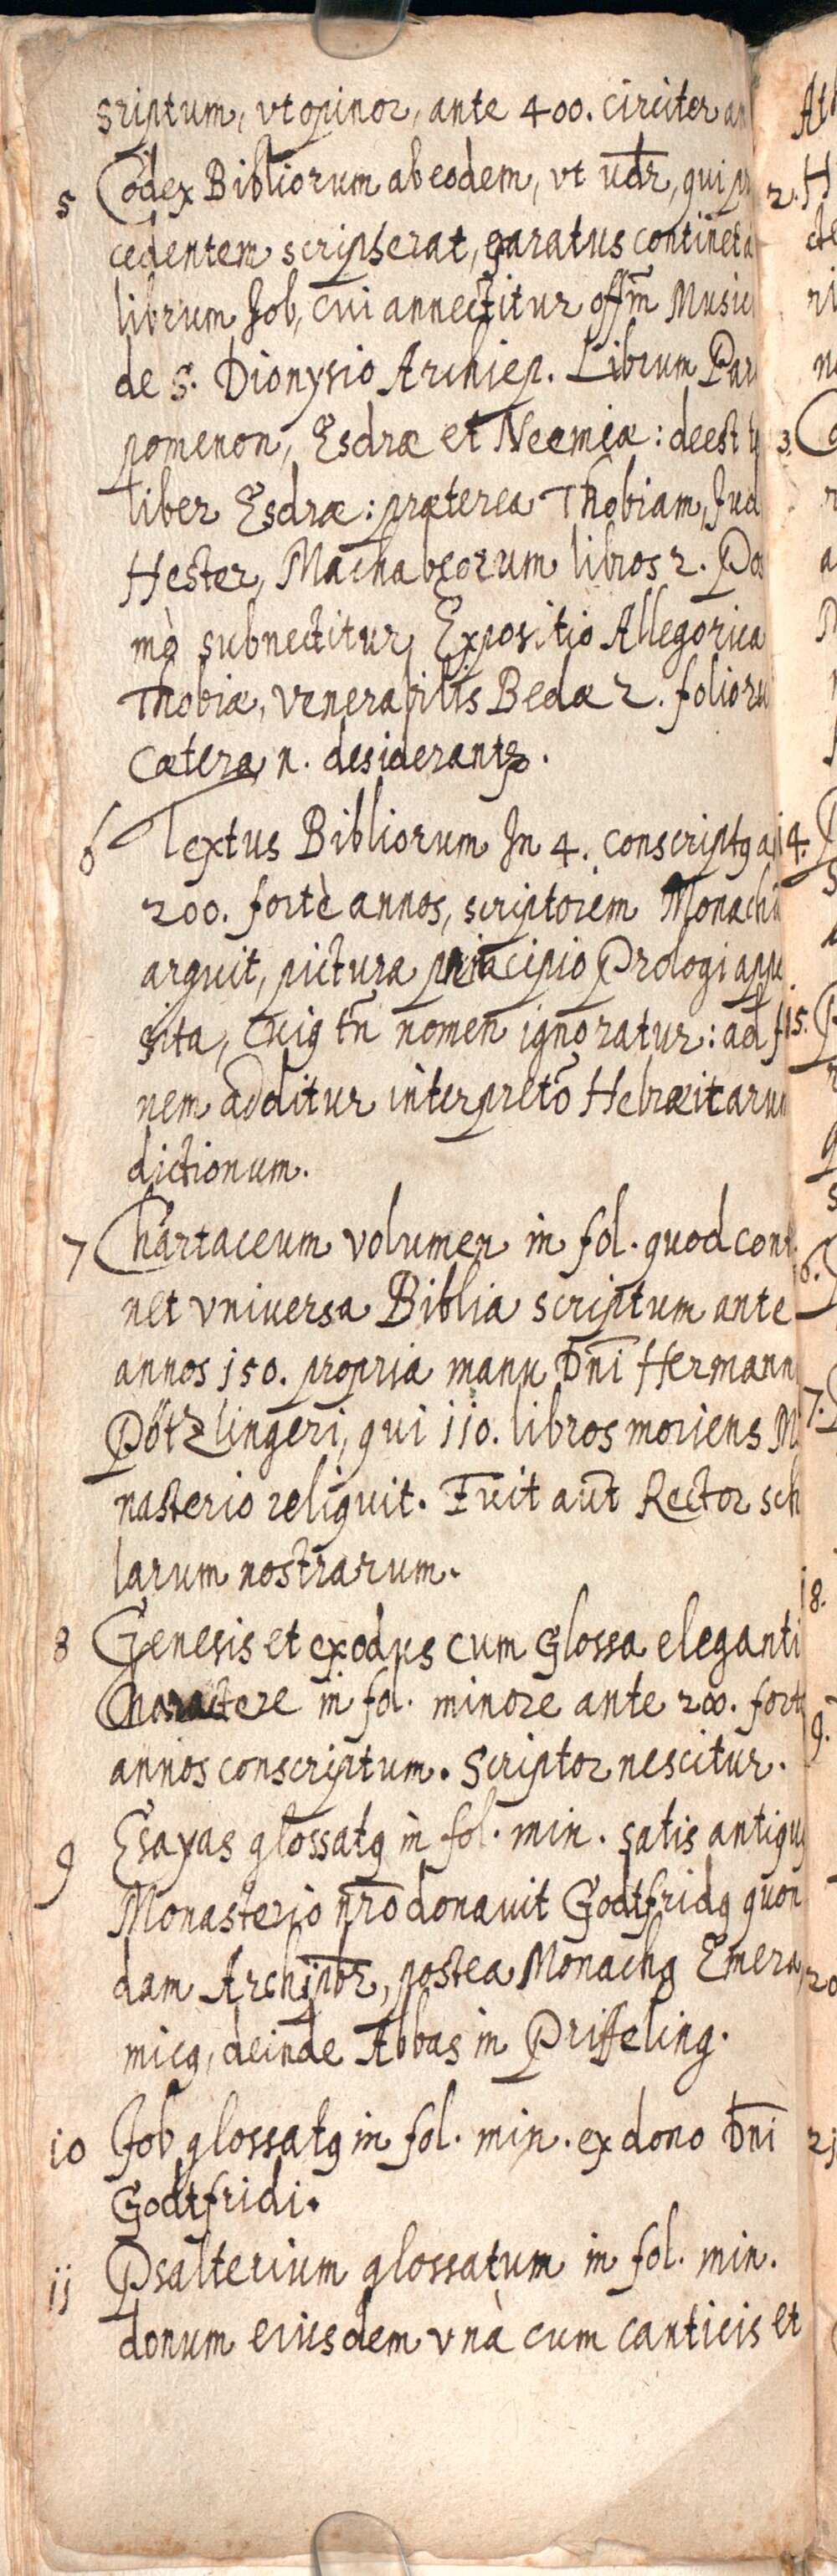 scriptum, vt opinor, ante 400. circiter an
5 Codex Bibliorum ab eodem, vt vdr̄, qui pr
cedentem scripserat, paratus continet a
librum Job, cui annectitur offm̄ Music
de S. Dionysio Archiep. Librum Par
pomenon, Esdræ et Neemiæ: deest t
liber Esdræ: præterea Thobiam, Jud
Hester, Machabeorum libros 2. Pos
mò subnectitur Expositio Allegorica
Thobiæ, venerabilis Bedæ 2. folioru
Cætera n. desiderantꝛ.
6 Textus Bibliorum In 4. conscriptꝰ a
200. fortè annos, scriptorem Monachū
arguit, pictura principio Prologi appo
sita, Cuiꝰ tn̄ nomen ignoratur: ad f
nem additur interpretō Hebraicarum
dictionum.
7 Chartaceum volumen in fol. quod cont
net vniuersa Biblia scriptum ante
annos 150. propria manu Dn̄i Hermann
Pötzlingeri, qui 110. libros moriens M
nasterio reliquit. Fuit aut̄ Rector sch
larum nostrarum.
8 Genesis et exodus cum Glossa eleganti
Charactere in fol. minore ante 200. fort
annos conscriptum. Scriptor nescitur.
9 Esayas glossatꝰ in fol. min. satis antiquꝰ
Monasterio nrō donauit Godtfridꝰ quon
dam Archipbr̄, postea Monachꝰ Emera
micꝰ, deinde Abbas in Priffeling.
10 Job glossatꝰ in fol. min. ex dono Dn̄i
Godtfridi.
11 Psalterium glossatum in fol. min.
donum eiusdem vnà cum canticis et